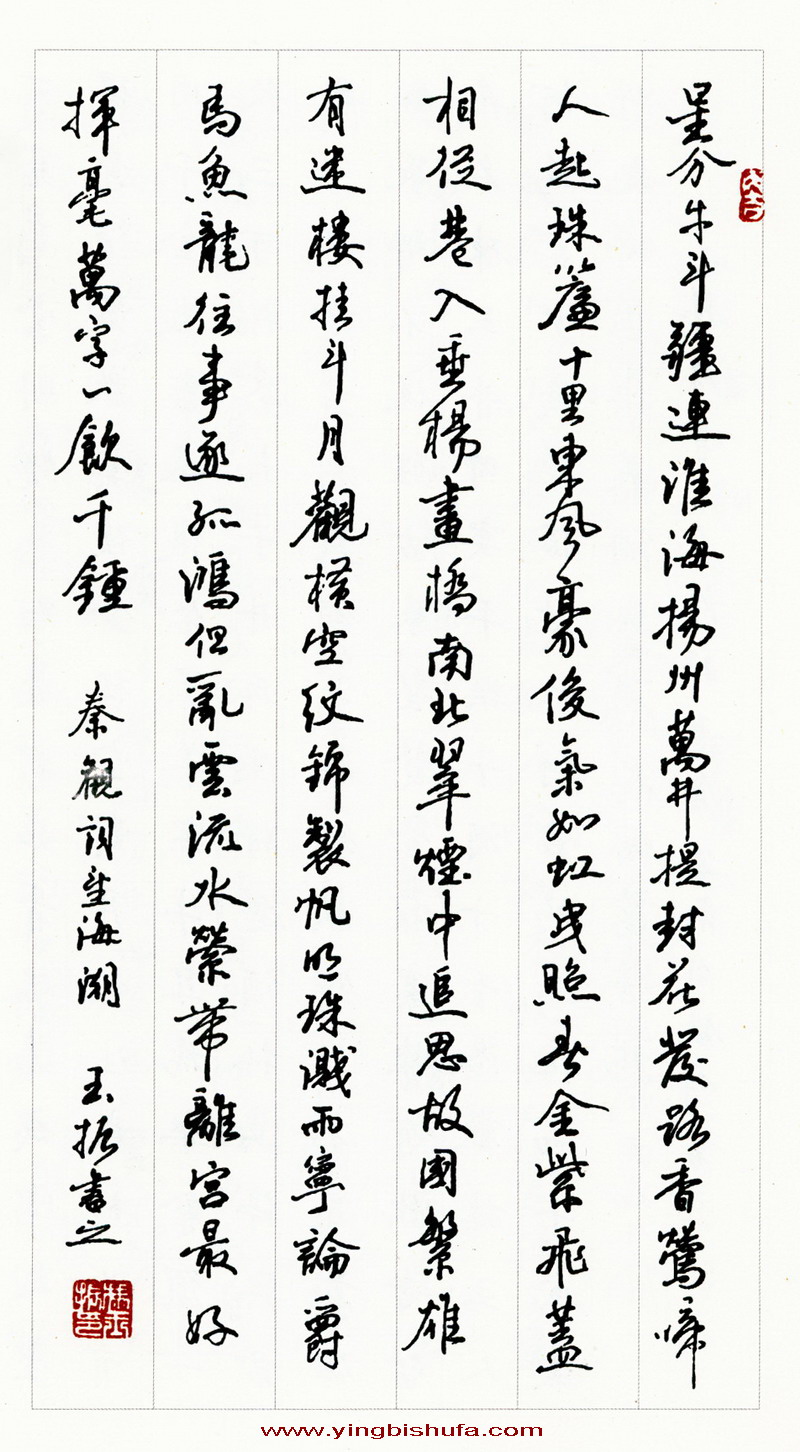 星分牛斗疆連淮海揚州萬井提封花發路香鶯啼
人起珠簾十里東風豪俊氣如虹曳照春金紫飛蓋
相從巷入垂楊畫橋南北翠煙中追思故國繁雄
有迷樓挂斗月觀橫空紋錦製帆明珠濺雨寧論爵
馬魚龍往事逐孤鴻但亂雲流水縈帶離宮最好
揮毫萬字一飲千鍾 秦觀詞望海潮 玉振書之
www.yingbishufa.com